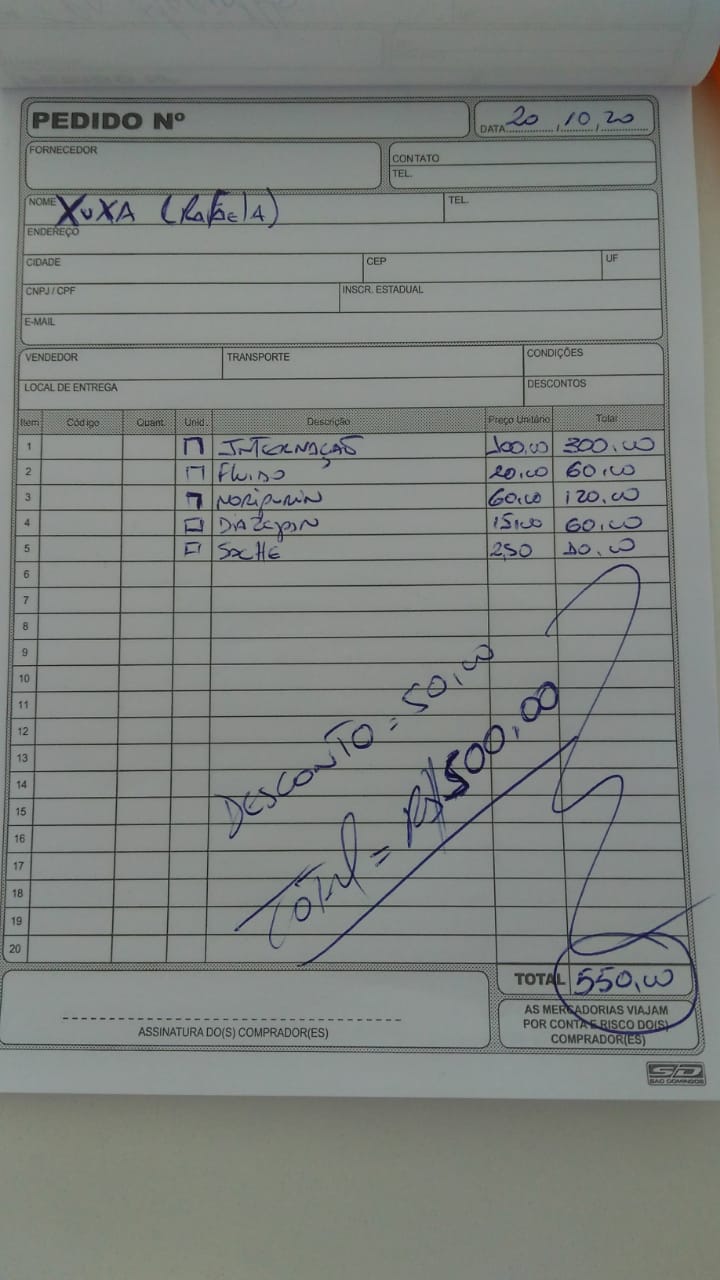 PEDIDO Nº
DATA 20 / 10 / 20
FORNECEDOR
CONTATO
TEL.
NOME XUXA (RAFAELA) TEL.
ENDEREÇO
CIDADE CEP UF
CNPJ / CPF INSCR. ESTADUAL
E-MAIL
VENDEDOR TRANSPORTE CONDIÇÕES
LOCAL DE ENTREGA DESCONTOS
Item Código Quant. Unid. Descrição Preço Unitário Total
1 INTERNAÇÃO 100,00 300,00
2 FLUIDO 20,00 60,00
3 NORIPURIN 60,00 120,00
4 DIAZEPAN 15,00 60,00
5 SACHE 2,50 10,00
6
7
8
9
10
11
12
13
14
15
16
17
18
19
20
DESCONTO = 50,00
TOTAL = R$ 500,00
TOTAL 550,00
ASSINATURA DO(S) COMPRADOR(ES)
AS MERCADORIAS VIAJAM
POR CONTA E RISCO DO(S)
COMPRADOR(ES)
SD
SÃO DOMINGOS